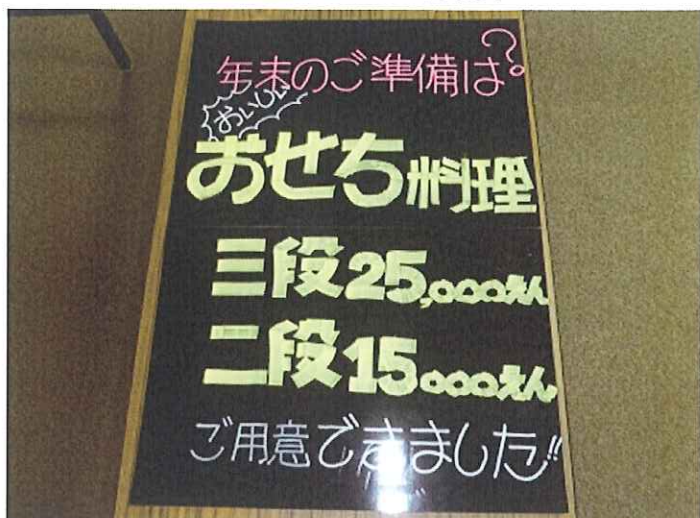 年末のご準備は?
おいしい
おせち料理
三段25,000えん
二段15000えん
ご用意できました!!